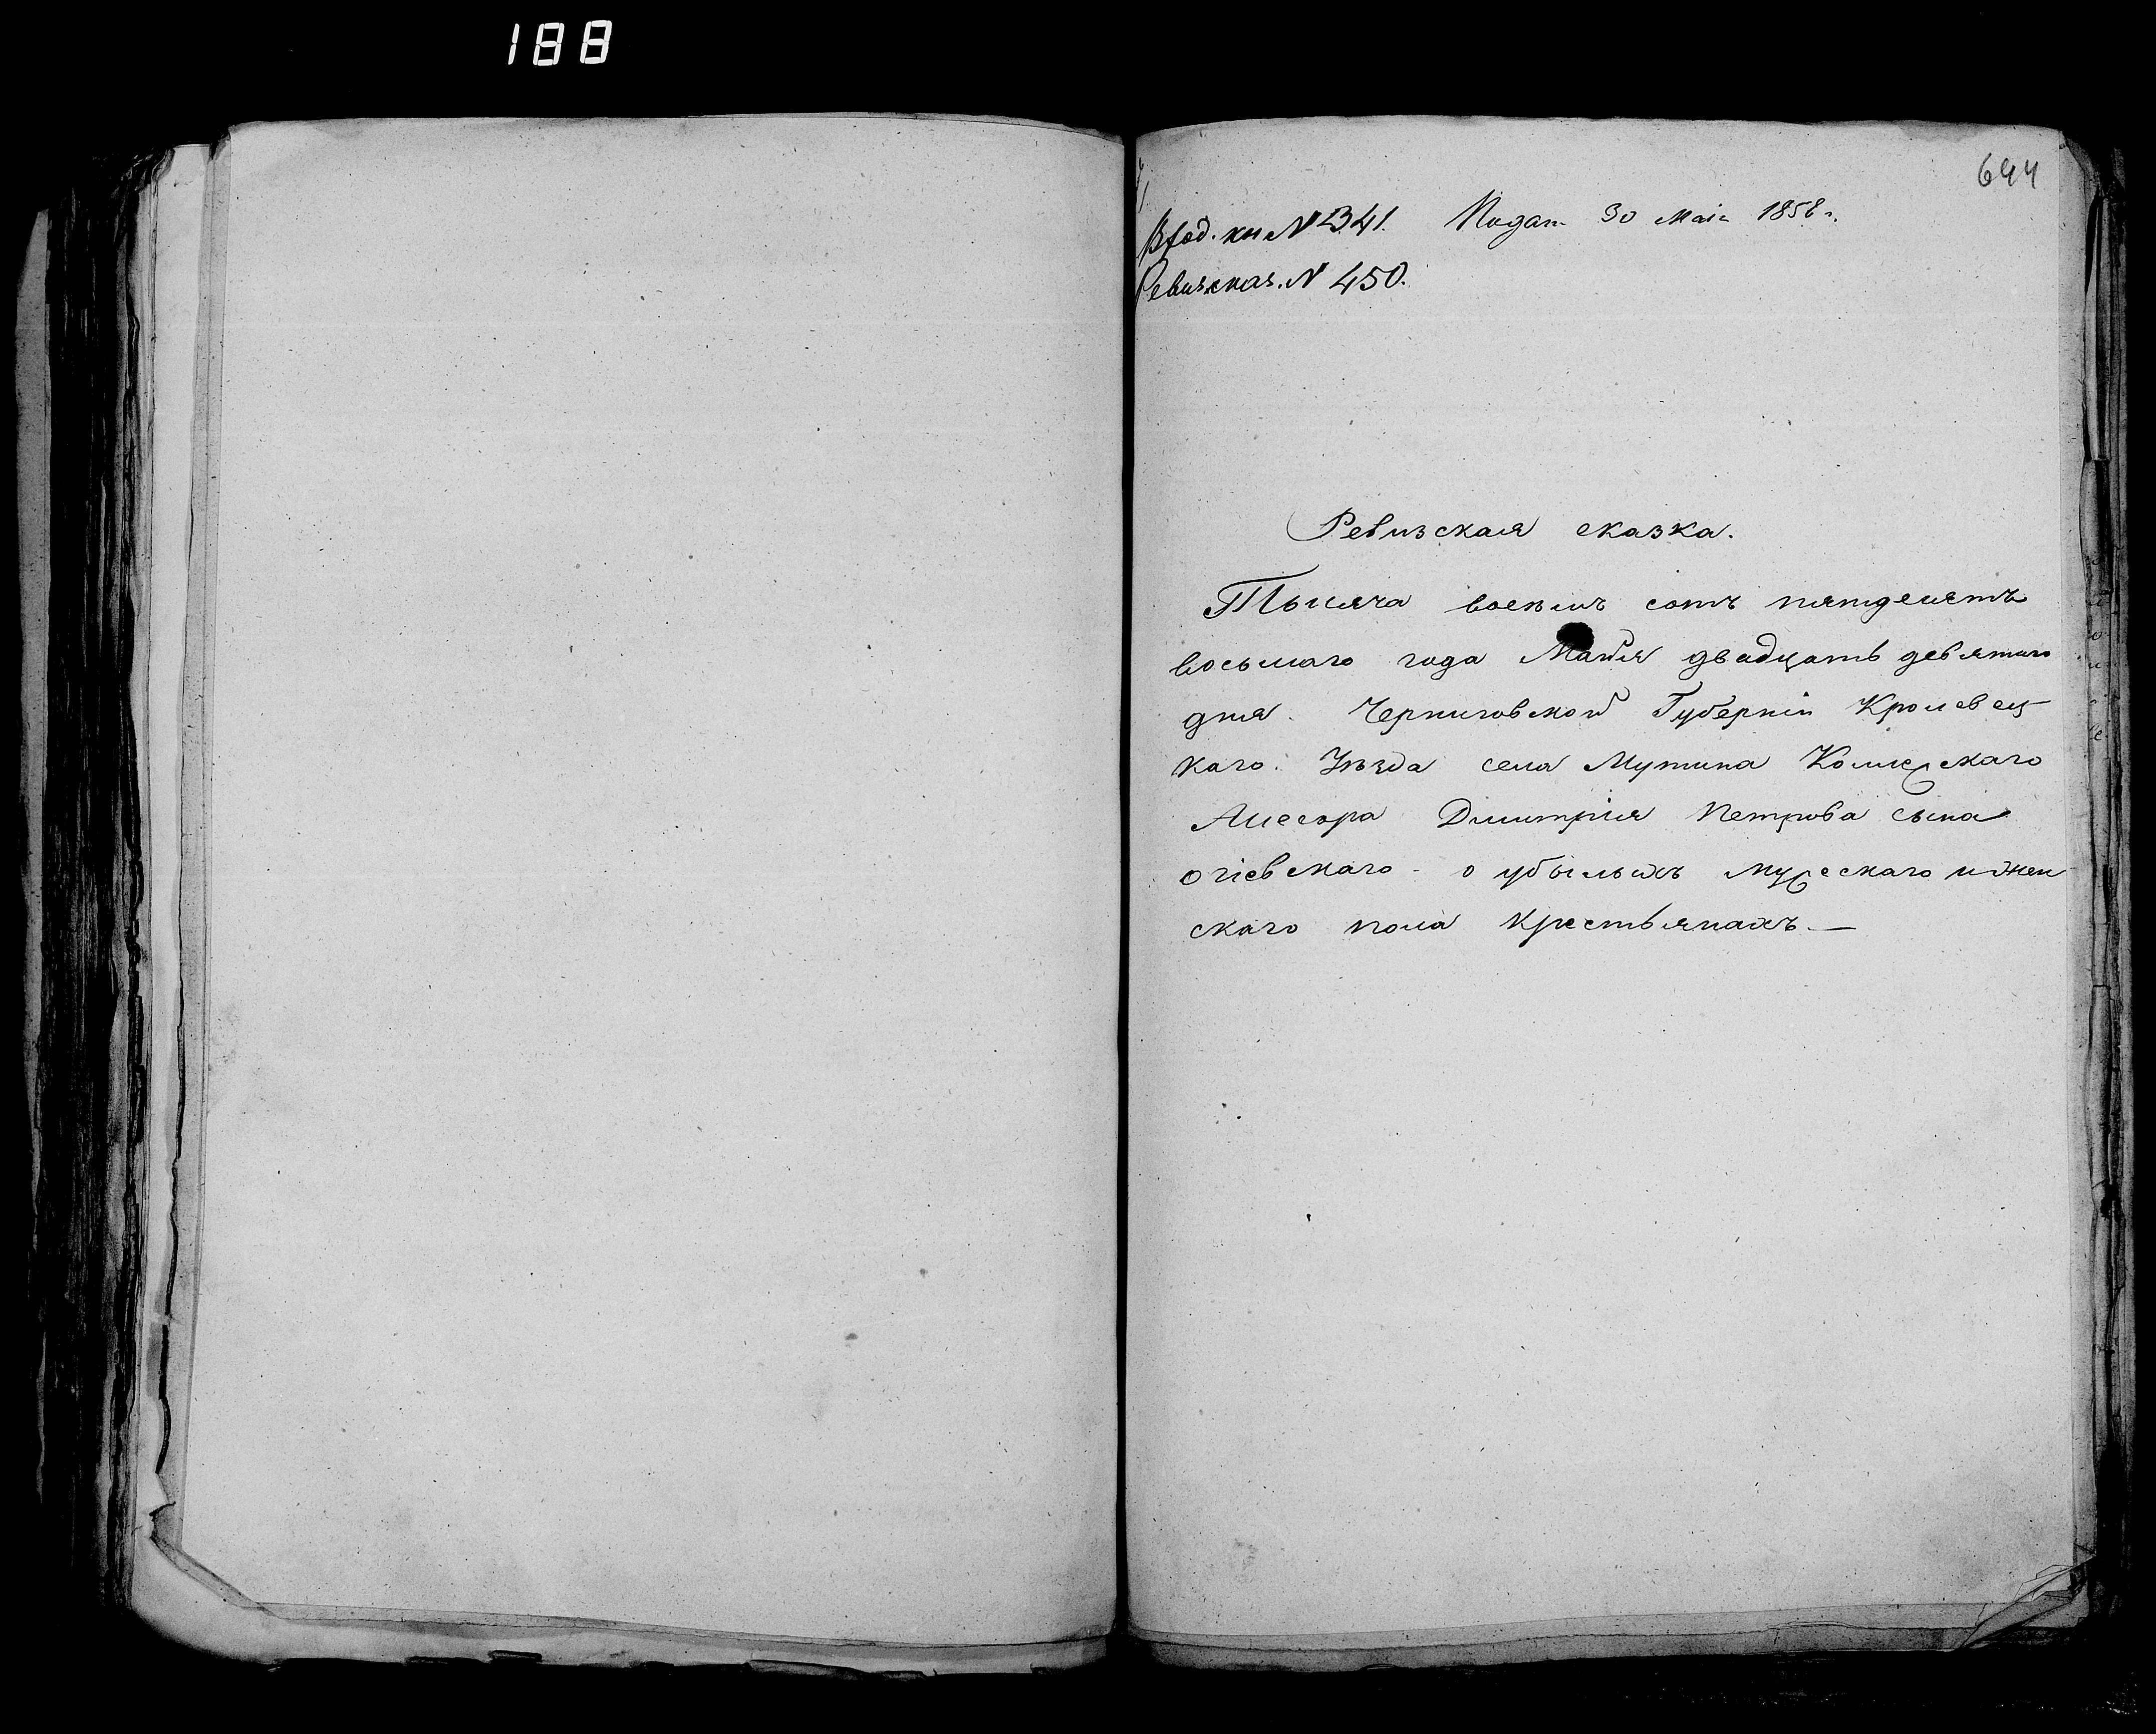 188
644
Вход. кн № 341. Подан 30 Маія 1858 г.
Ревиз. сказ. № 450.
Ревизская сказка.
Тысяча восемь сотъ пятдесятъ
восьмаго года Майя двадцать девятаго
дня. Черниговской Губерніи Кролевец-
каго. Уѣзда села Мутина Колижскаго
Ассесора Дмитрія Петрова сына
огіевскаго - о убылыхъ Мужескаго и жен
скаго пола крестьянахъ. —